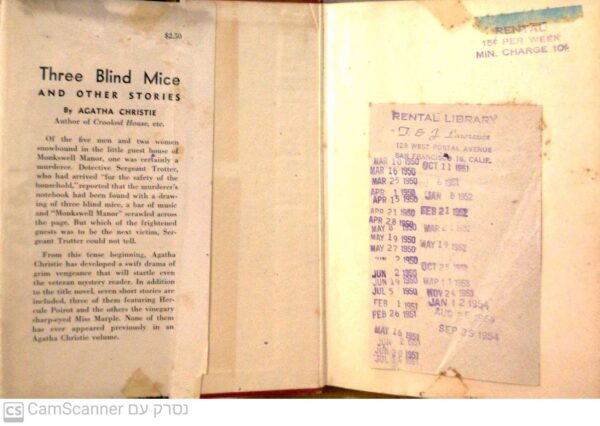 $2.50
Three Blind Mice
AND OTHER STORIES
By AGATHA CHRISTIE
Author of Crooked House, etc.
Of the five men and two women
snowbound in the little guest house of
Monkswell Manor, one was certainly a
murderer. Detective Sergeant Trotter,
who had arrived "for the safety of the
household," reported that the murderer's
notebook had been found with a draw-
ing of three blind mice, a bar of music
and "Monkswell Manor" scrawled across
the page. But which of the frightened
guests was to be the next victim, Ser-
geant Trotter could not tell.
From this tense beginning, Agatha
Christie has developed a swift drama of
grim vengeance that will startle even
the veteran mystery reader. In addition
to the title novel, seven short stories are
included, three of them featuring Her-
cule Poirot and the others the vinegary
sharp-eyed Miss Marple. None of them
has ever appeared previously in an
Agatha Christie volume.
RENTAL
15¢ PER WEEK
MIN. CHARGE 10¢
RENTAL LIBRARY
T & J Lawrence
123 WEST PORTAL AVENUE
SAN FRANCISCO 16, CALIF.
MAR 10 1950 OCT 11 1951
MAR 16 1950
MAR 25 1950 1951
APR 1 1950 JAN 8 1952
APR 15 1950
APR 21 1950 FEB 21 1952
APR 28 1950
MAY 8 1950 MAR 2 1952
MAY 19 1950
MAY 27 1950 MAY 19 1952
JUN 2 1950 OCT 25
JUN 2 1950
JUN 14 1950 MAR 17 1953
JUL 5 1950 NOV 24 1953
FEB 1 1951 JAN 12 1954
FEB 26 1951 AUG 1954
MAY 16 1951 SEP 25 1954
JUN 2 1951
JUN 20 1951
JUL 1951
CS CamScanner נסרק עם